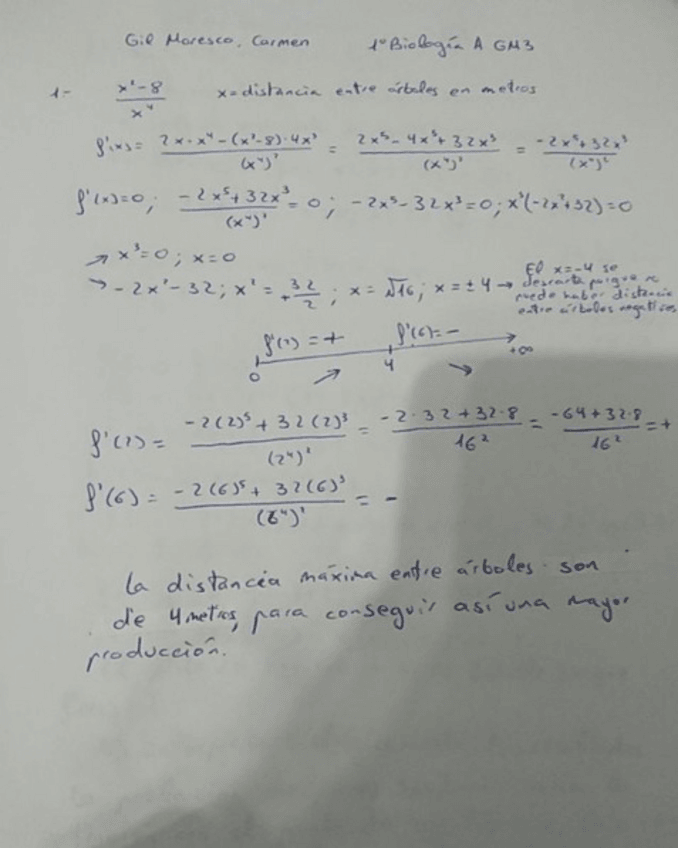 Gil Moresco, Carmen 1º Biología A GM3
1- \frac{x²-8}{x⁴} x=distancia entre árboles en metros
f'(x)= \frac{2x·x⁴-(x²-8)·4x³}{(x⁴)²} = \frac{2x⁵-4x⁵+32x³}{(x⁴)²} = \frac{-2x⁵+32x³}{(x⁴)²}
f'(x)=0; \frac{-2x⁵+32x³}{(x⁴)²}=0; -2x⁵-32x³=0; x³(-2x²+32)=0
→ x³=0; x=0
→ -2x²-32; x²=+\frac{32}{2}; x=√16; x=±4 → El x=-4 se
descarta porque no
puede haber distancia
entre árboles negativos
f'(2)=+ f'(6)=-
0 4 +∞
f'(2)= \frac{-2(2)⁵+32(2)³}{(2⁴)²} = \frac{-2·32+32·8}{16²} = \frac{-64+32·8}{16²} =+
f'(6)= \frac{-2(6)⁵+32(6)³}{(6⁴)²} = -
La distancia máxima entre árboles son
de 4 metros, para conseguir así una mayor
producción.